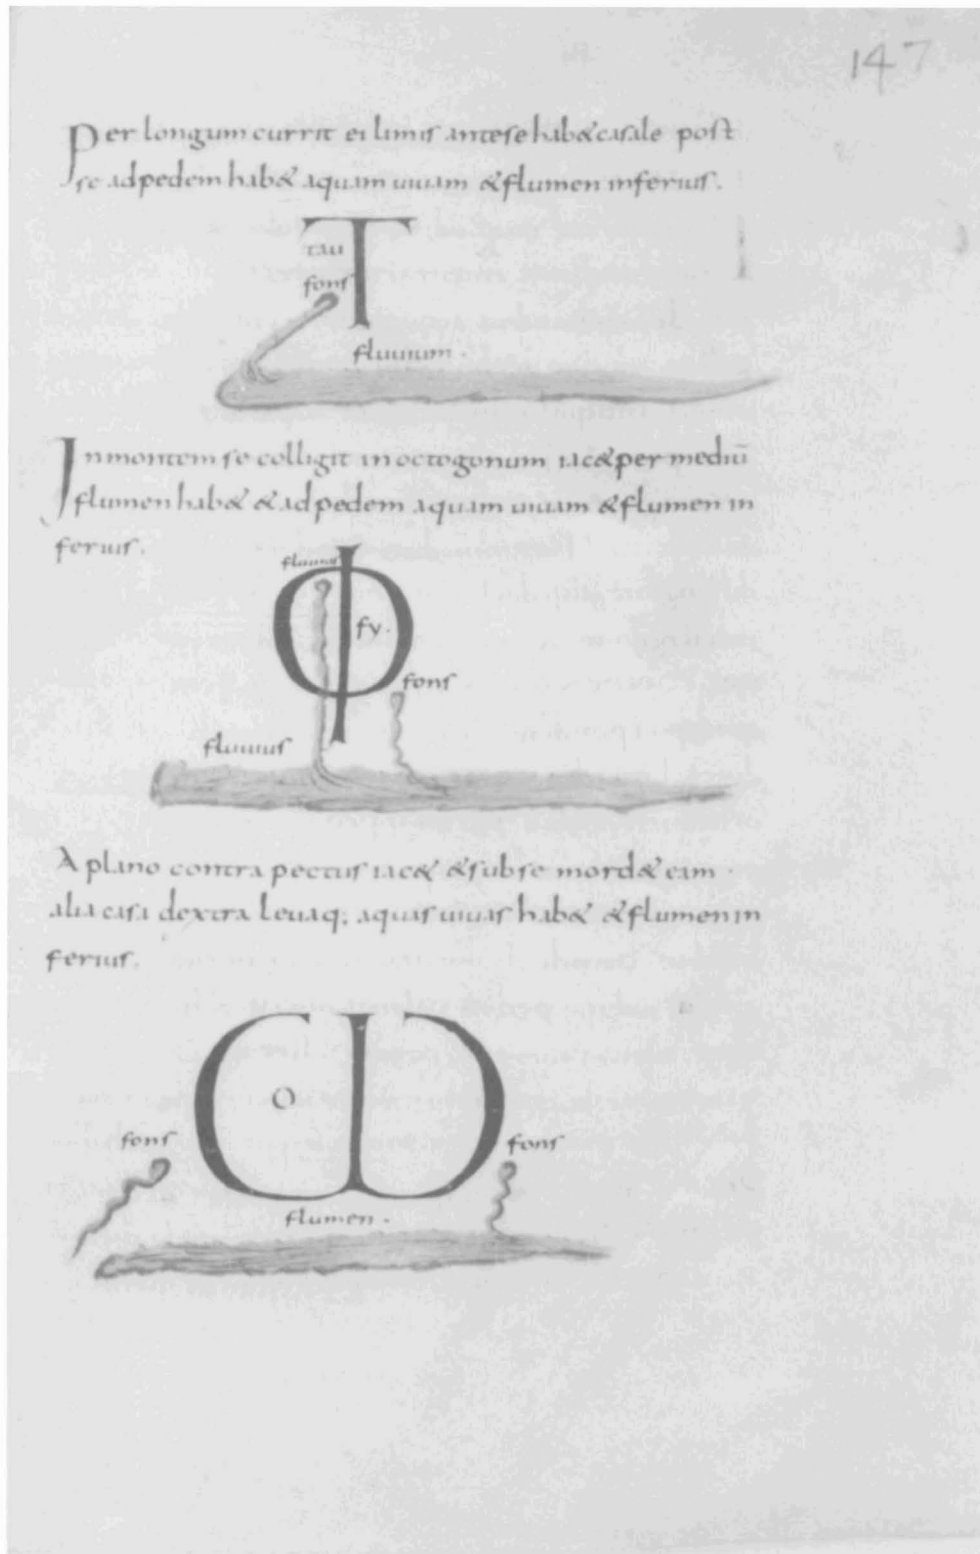 147
Per longum currit ei limis ante se hab& casale post
se ad pedem hab& aquam uiuam &flumen inferius.
T
tau
fons
fluuium.
In montem se colligit in octogonum iac& per mediū
flumen hab& & ad pedem aquam uiuam &flumen in
ferius.
fluuius
Φ
fy.
fons
fluuius
A plano contra pectus iac& &sub se mord& eam.
alia casa dextra leuaq; aquas uiuas hab& &flumen in
ferius.
Ѡ
O
fons
fons
flumen.